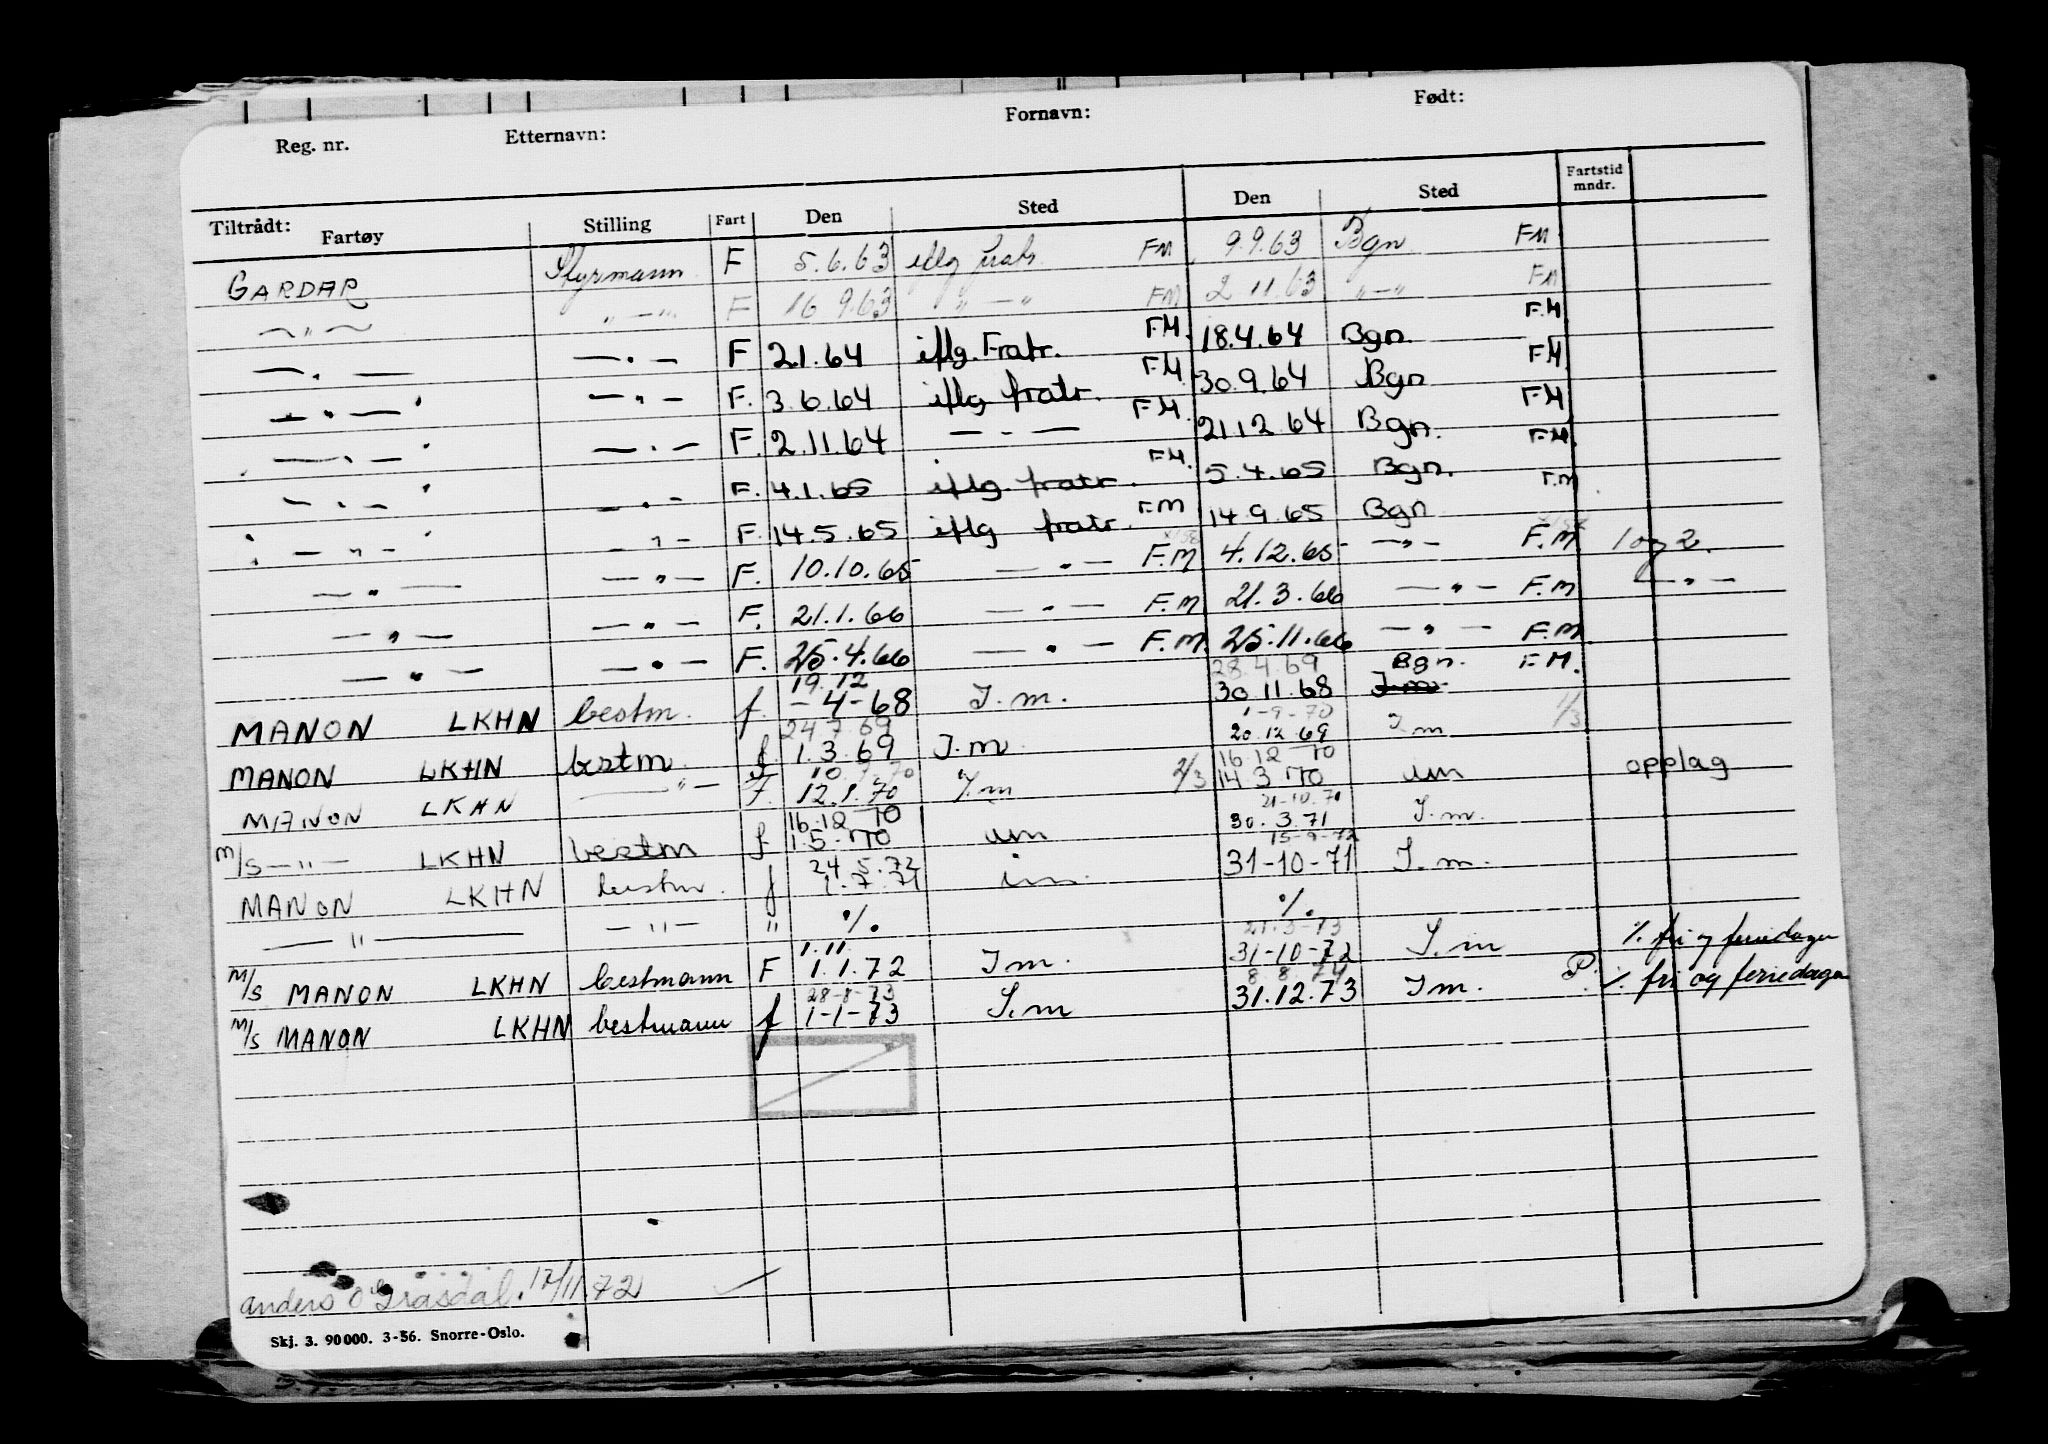 Reg. nr. Etternavn: Fornavn: Født:
Tiltrådt: Fartøy Stilling Fart Den Sted Den Sted Fartstid mndr.
GARDAR Styrmann F 5.6.63 iflg fratr. FM 9.9.63 Bgn FM
— " — " — " F 16 9.63 " — " FM 2 11 63 " — " FM
— " — — " — F 2.1.64 iflg. Fratr. F.M. 18.4.64 Bgn. F.M
— " — — " — F. 3.6.64 iflg fratr. F.M. 30.9.64 Bgn F.M
— " — — " — F. 2.11.64 — " — F.M. 21.12.64 Bgn. F.M
— " — — " — F. 4.1.65 iflg. fratr. F.M. 5.4.65 Bgn. F.M.
— " — — " — F. 14.5.65 iflg fratr. F.M 14.9.65 Bgn F.M
— " — — " — F. 10.10.65 — " — F.M 4.12.65 — " — F.M 1 og 2.
— " — — " — F. 21.1.66 — " — F.M 21.3.66 — " — F.M — " —
— " — — " — F. 25.4.66 — " — F.M. 25.11.66 — " — F.M
19.12 28.4.69 Bgn. F.M.
MANON LKHN bestm. f. -4-68 I.m. 30.11.68 I.m.
24 7.69 1-9-70
MANON LKHN bestm f 1.3.69 I.m 20.12.69 I.m 1/3
10.9.70 16.12 70
MANON LKHN — " — F. 12.1.70 I.m 2/3 14.3.70 im opplag
16.12 70 21-10.71
M/S — " — LKHN bestm f 1.5.70 im 30.3.71 I.m.
24.5.72 15-9-72
MANON LKHN bestm. f 1.7.71 im. 31-10-71 I.m.
— " — — " — " ./. ./.
1.11 21-3-73
M/S MANON LKHN bestmann F 1.1.72 I m. 31-10-72 I.m ./. fri og feriedager
28-8-73 8.8.74
M/S MANON LKHN bestmann f 1-1-73 I.m 31.12.73 I m. P. ./. fri og feriedager
anders O Gråsdal. 17/11 72
Skj. 3. 90000. 3-56. Snorre-Oslo.